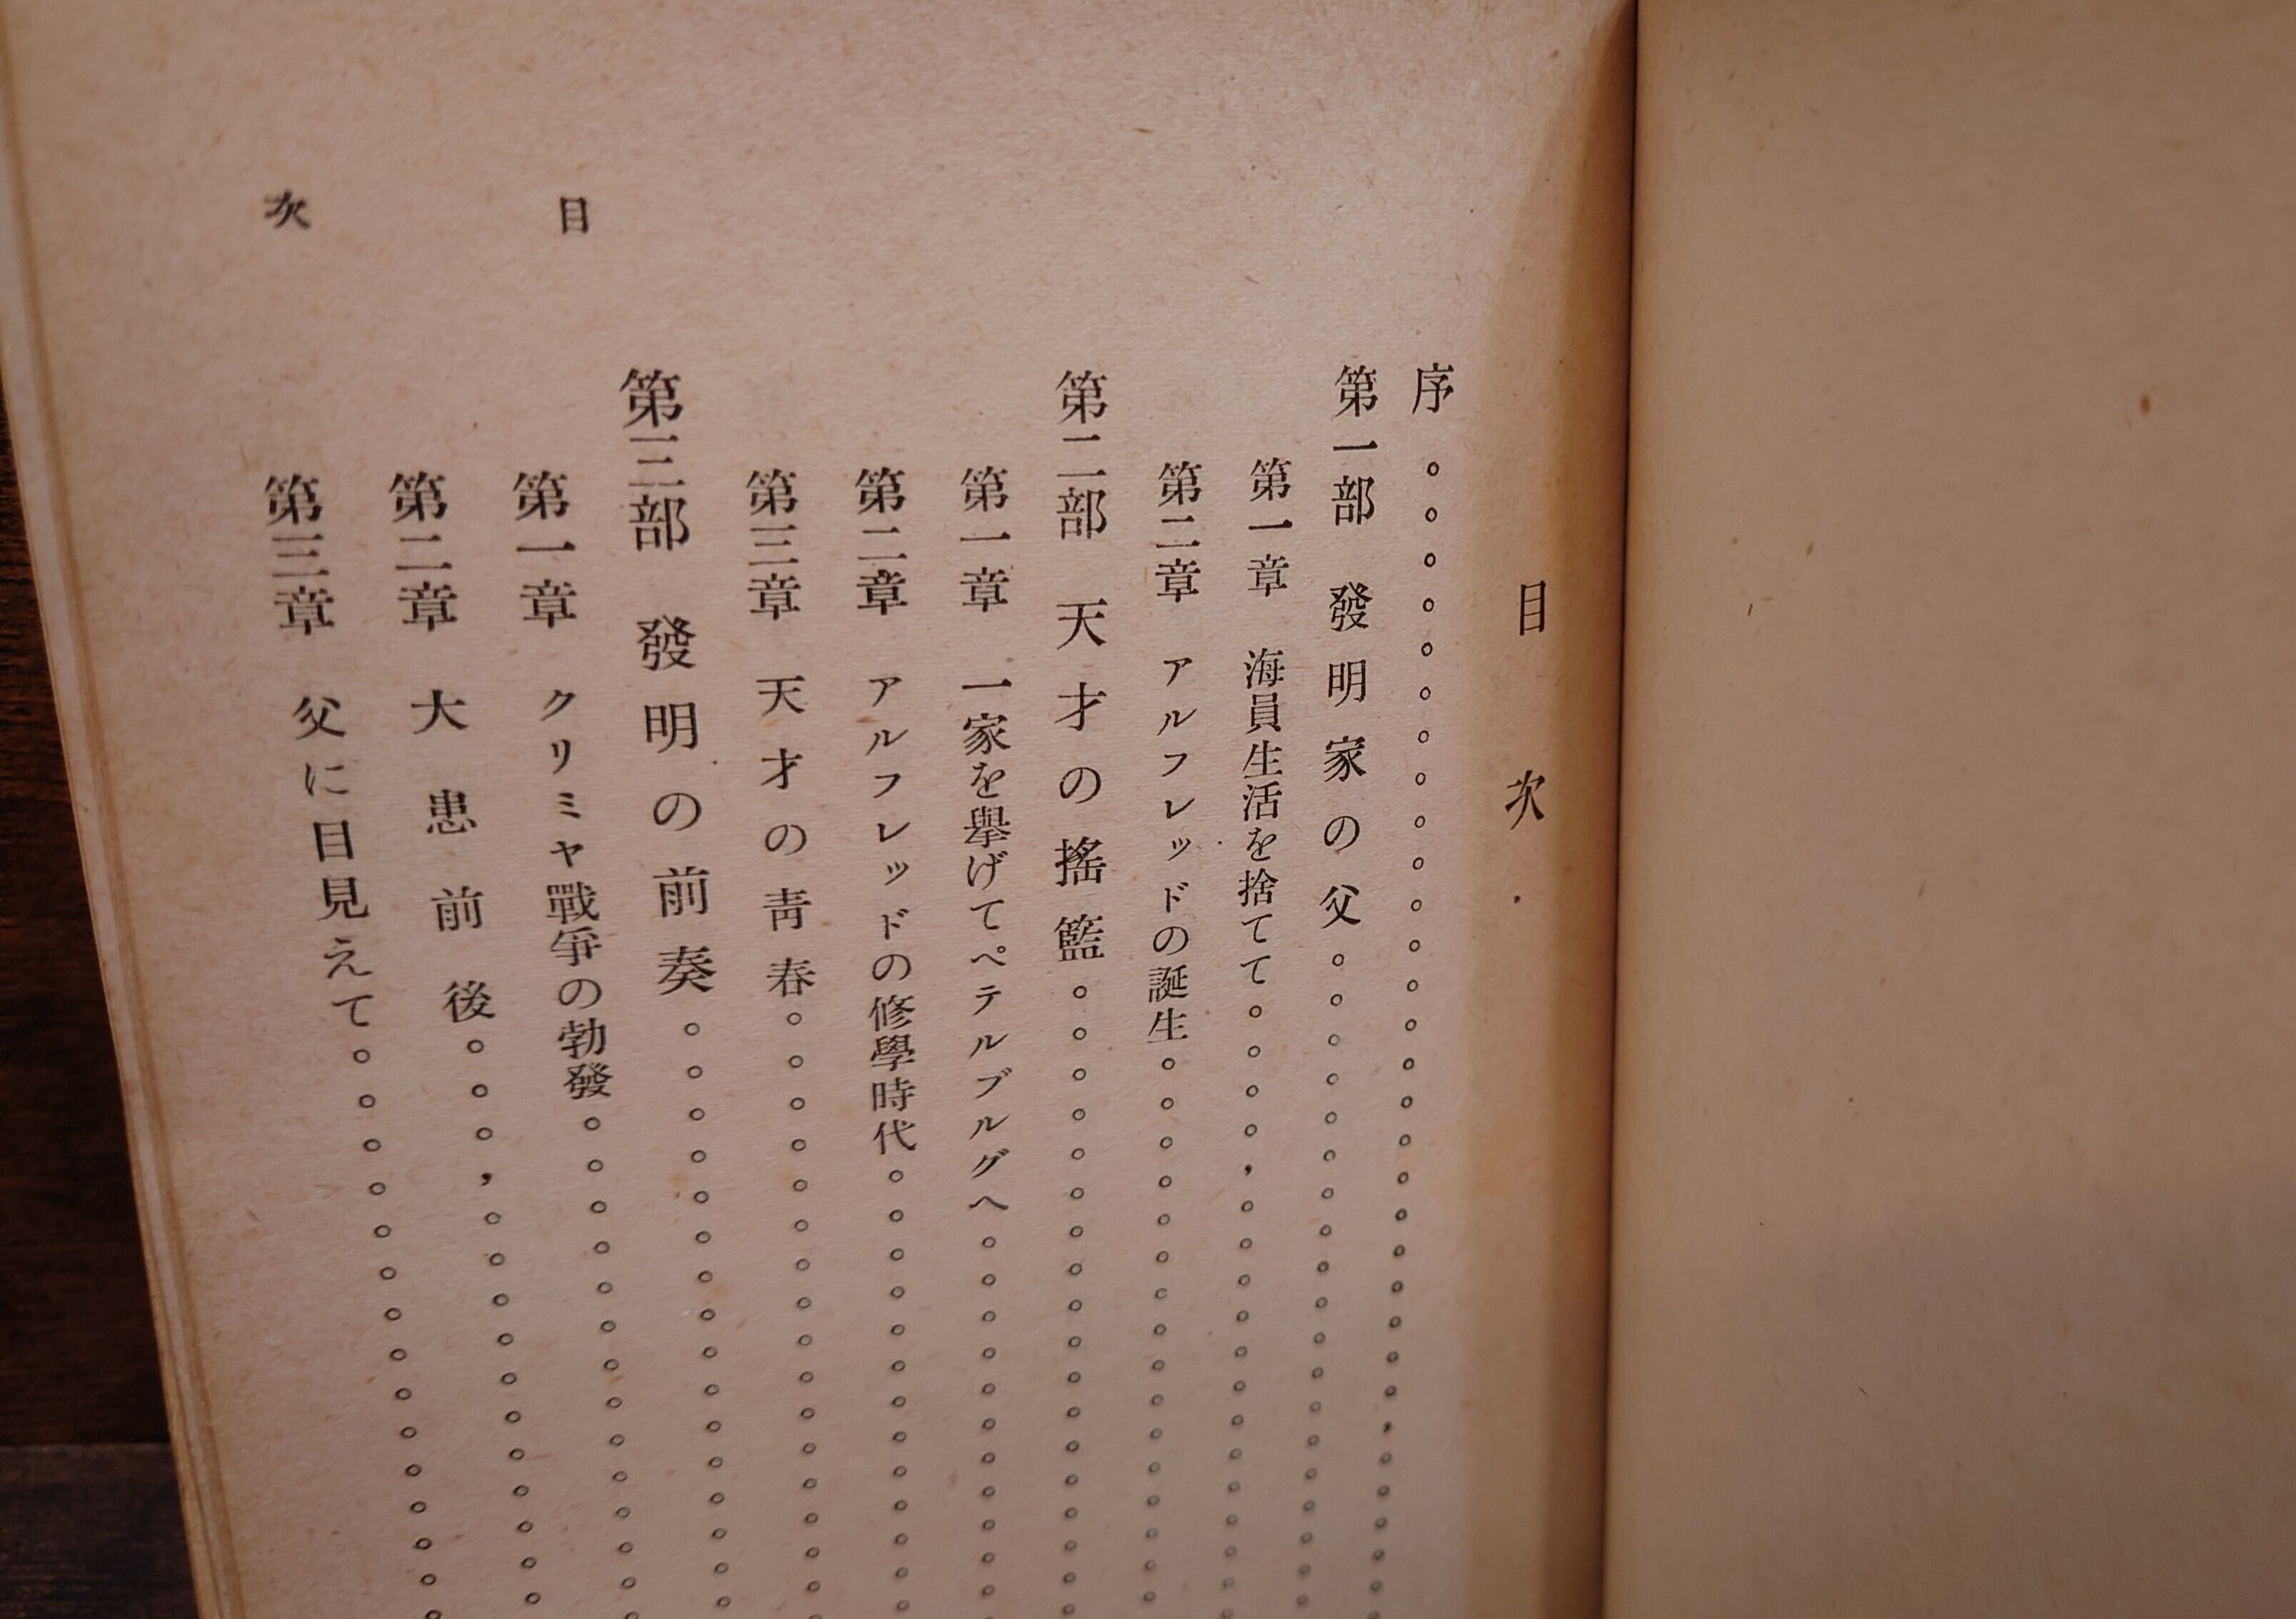 目次
序。。。。。。。。。。。。。。。。。。。。。。。。。。。
第一部 發明家の父。。。。。。。。。。。。。。。。。。
第一章 海員生活を捨てて。。。。。。。。。。。。。。。。
第二章 アルフレッドの誕生。。。。。。。。。。。。。。。
第二部 天才の搖籃。。。。。。。。。。。。。。。。。
第一章 一家を擧げてペテルブルグへ。。。。。。。。。。。
第二章 アルフレッドの修學時代。。。。。。。。。。。。
第三章 天才の靑春。。。。。。。。。。。。。。。。
第三部 發明の前奏。。。。。。。。。。。。。。。
第一章 クリミヤ戰爭の勃發。。。。。。。。。。。。。
第二章 大患前後。。。。。。。。。。。。。。。
第三章 父に目見えて。。。。。。。。。。。。。。。
目次